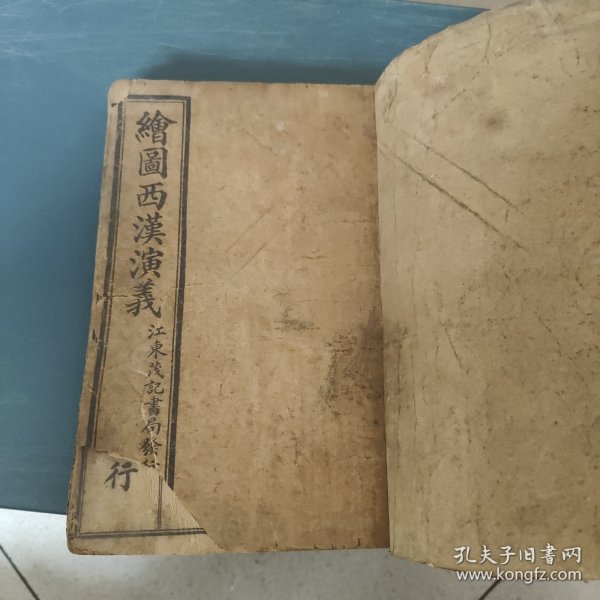 繪圖西漢演義
江東茂記書局發
行
孔夫子旧书网
www.kongfz.com